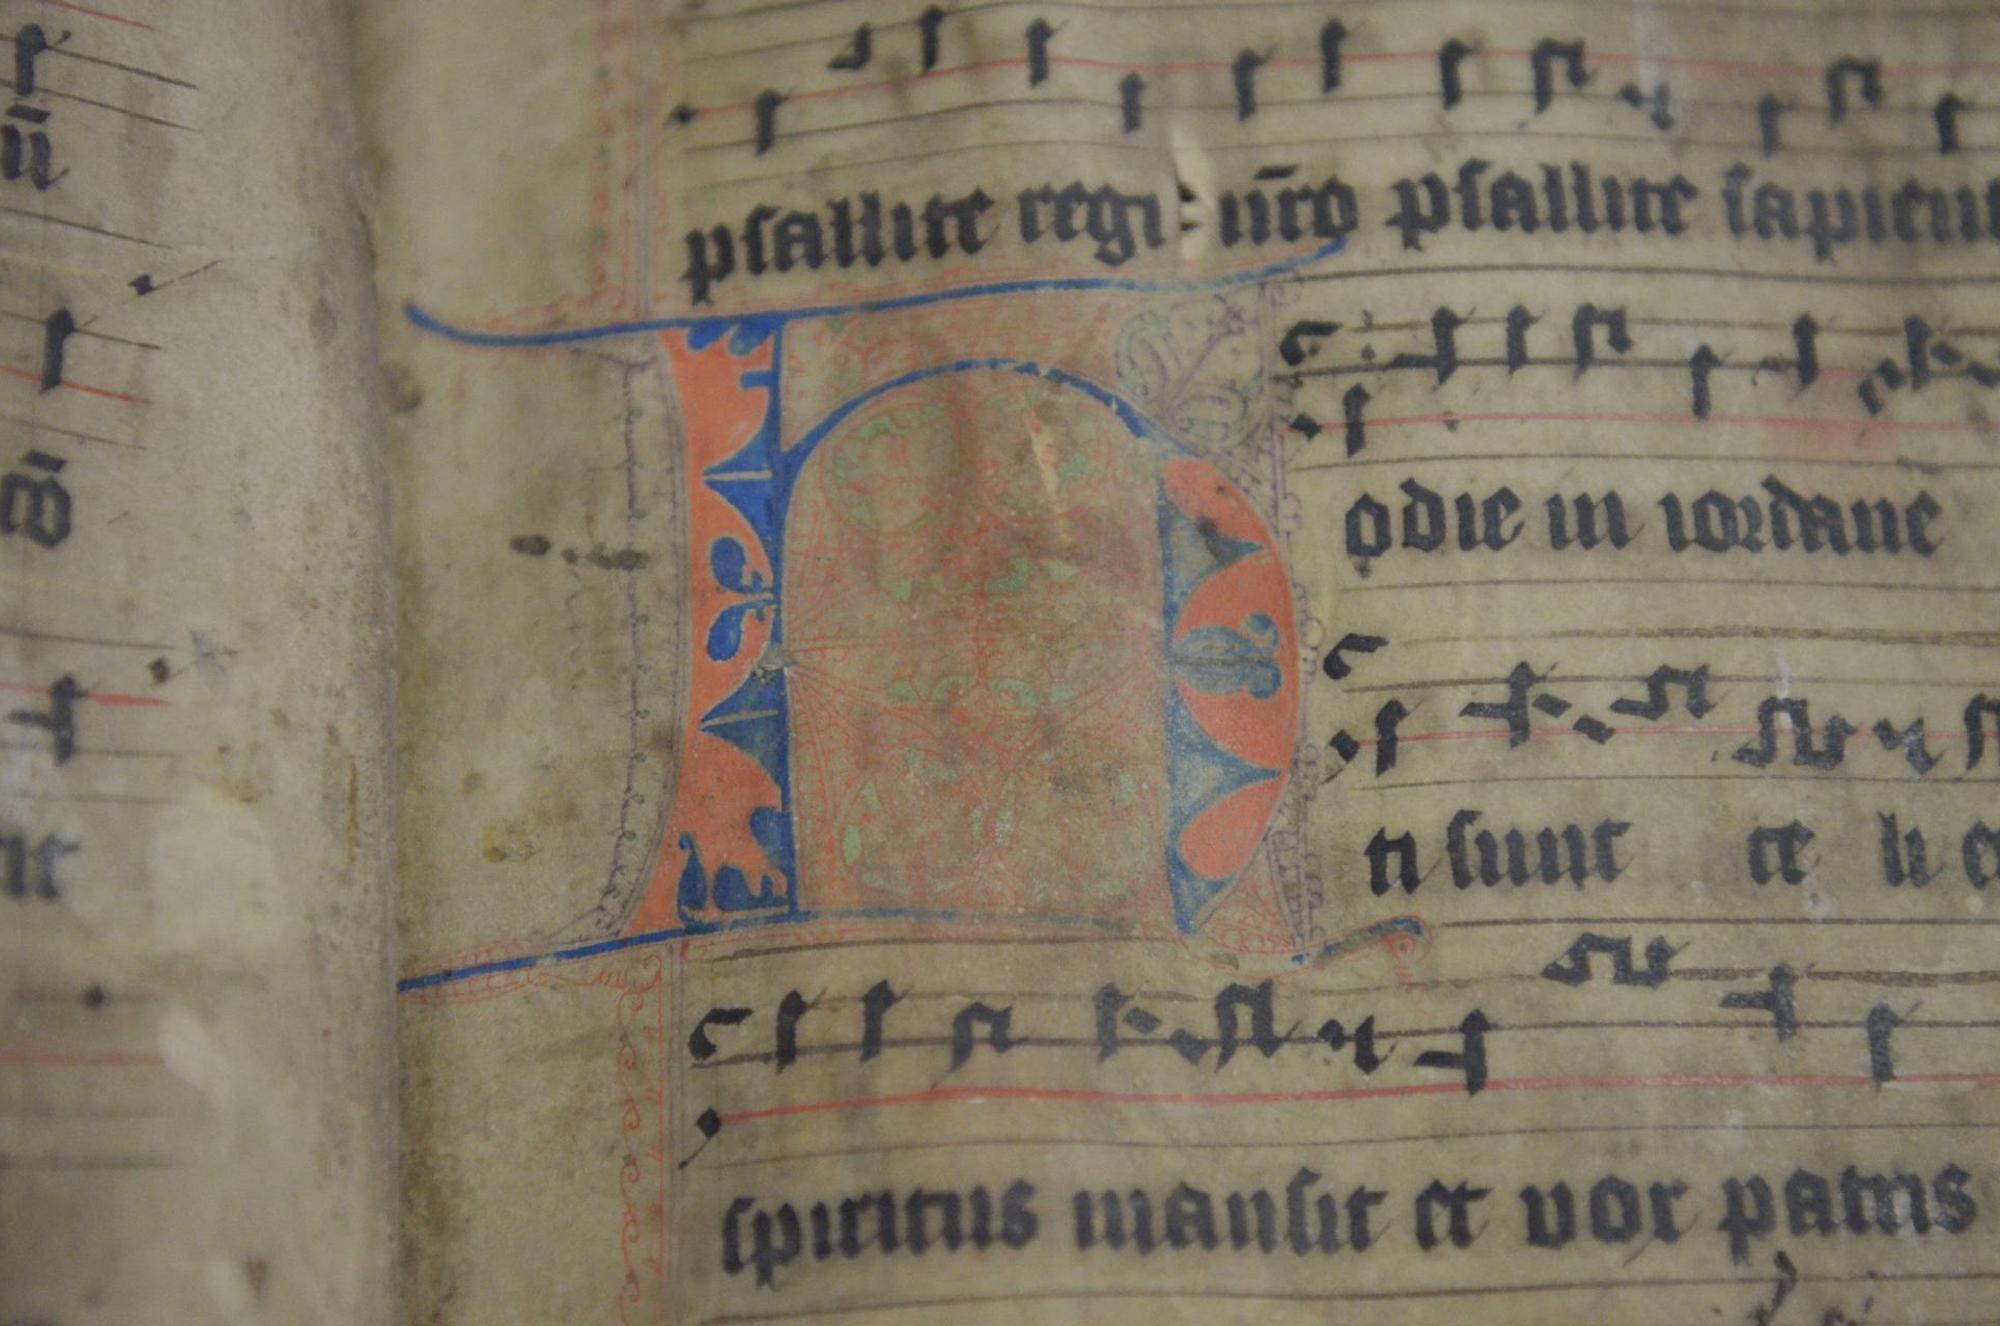 psallite regi nr̄o psallite sapien
Hodie in iordane
ti sunt ce li e
spiritus mansit et vox patris